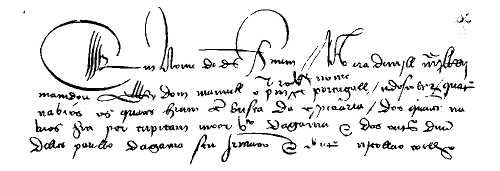 Em Nome de ds Amem // Na era de mill
deste nome
mandou ell Rey dom manuell o prº em portugall / a descobrir quatro
nabios os quaes hiam em busca da especiaria / dos quaes na
bios hia por capitam moor Vco dagama e dos outros duu
delles paullo dagama seu Irmaoo e doutro nicollao coelho